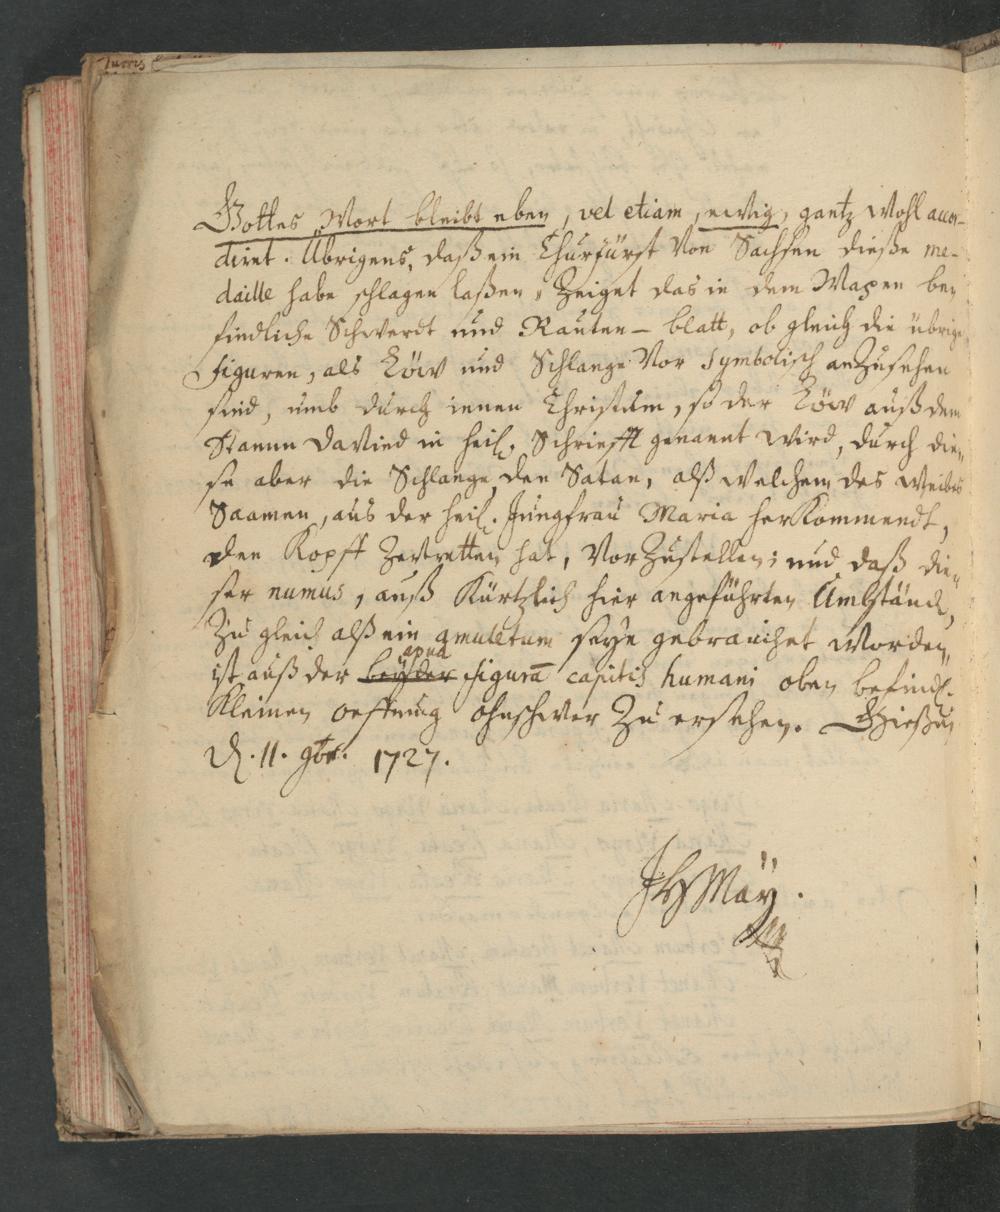 Gottes Wort bleibt eben, vel etiam, ewig, gantz wohl accor-
diret. Übrigens, daß ein Churfürst von Sachsen dieße me-
daille habe schlagen laßen, Zeiget das in dem Wapen be-
findliche Schwerdt und Rauten-blatt, ob gleich die übrige
figuren, als Löw und Schlange vor Symbolisch anzusehen
sind, umb durch ienen Christum, so der Löw auß dem
Stamm Davied in heil. Schriefft genannt wird, durch die-
se aber die Schlange, den Satan, alß welchem des Weibes
Saamen, aus der heil. Jungfrau Maria herkommendt,
den Kopff zertretten hat, vorzustellen; und daß die-
ser numus, auß kürtzlich hier angeführten Umbständ,
Zu gleich alß ein amuletum seÿe gebrauchet worden,
apud
ist auß der beÿ der figurā capitis humani oben befindl.
kleinen oeffnung ohnschwer zu ersehen. Gießen
d. 11. 9br. 1727.
JHMäÿ.